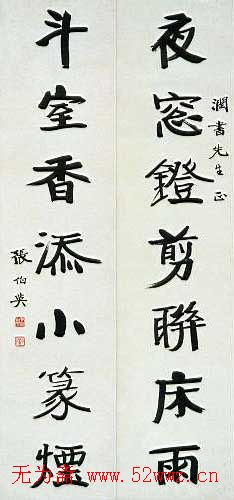 潤書先生正
夜窓鐙剪聯床雨
斗室香添小篆煙
張伯英
无为斋 www.52wwz.cn